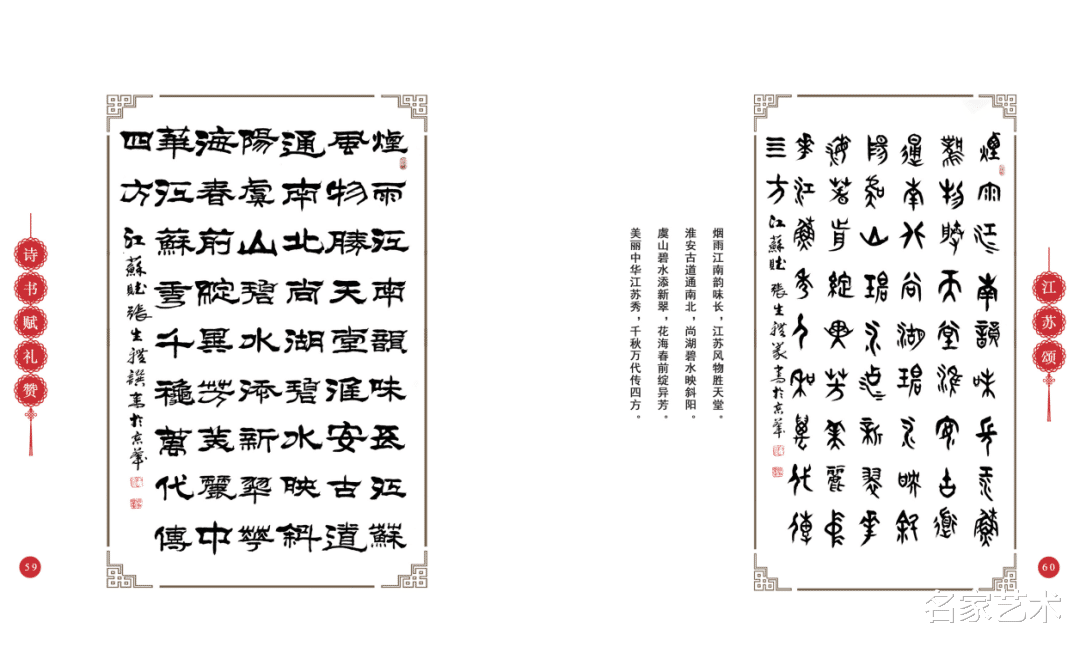 诗书赋礼赞
59
煙雨江南韻味長江蘇
風物勝天堂淮安古道
通南北尚湖碧水映斜
陽虞山碧水添新翠華
海春前綻異芳美麗中
華江蘇秀千穐萬代傳
四方
江蘇賦張生禮撰書於京華
烟雨江南韵味长，江苏风物胜天堂。
淮安古道通南北，尚湖碧水映斜阳。
虞山碧水添新翠，花海春前绽异芳。
美丽中华江苏秀，千秋万代传四方。
煙雨江南韻味長江蘇
風物勝天堂淮安古道
通南北尚湖碧水映斜
陽虞山碧水添新翠華
海春前綻異芳美麗中
華江蘇秀千秋萬代傳
三方
江蘇賦張生禮篆書於京華
江苏颂
60
名家艺术